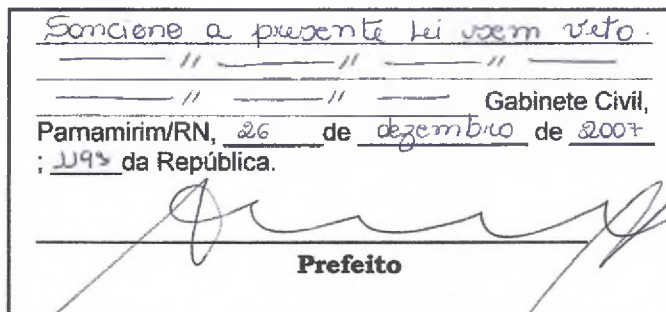 Sanciono a presente Lei sem veto.
— // — // — // —
— // — // — Gabinete Civil,
Parnamirim/RN, 26 de dezembro de 2007
; 119º da República.
Prefeito